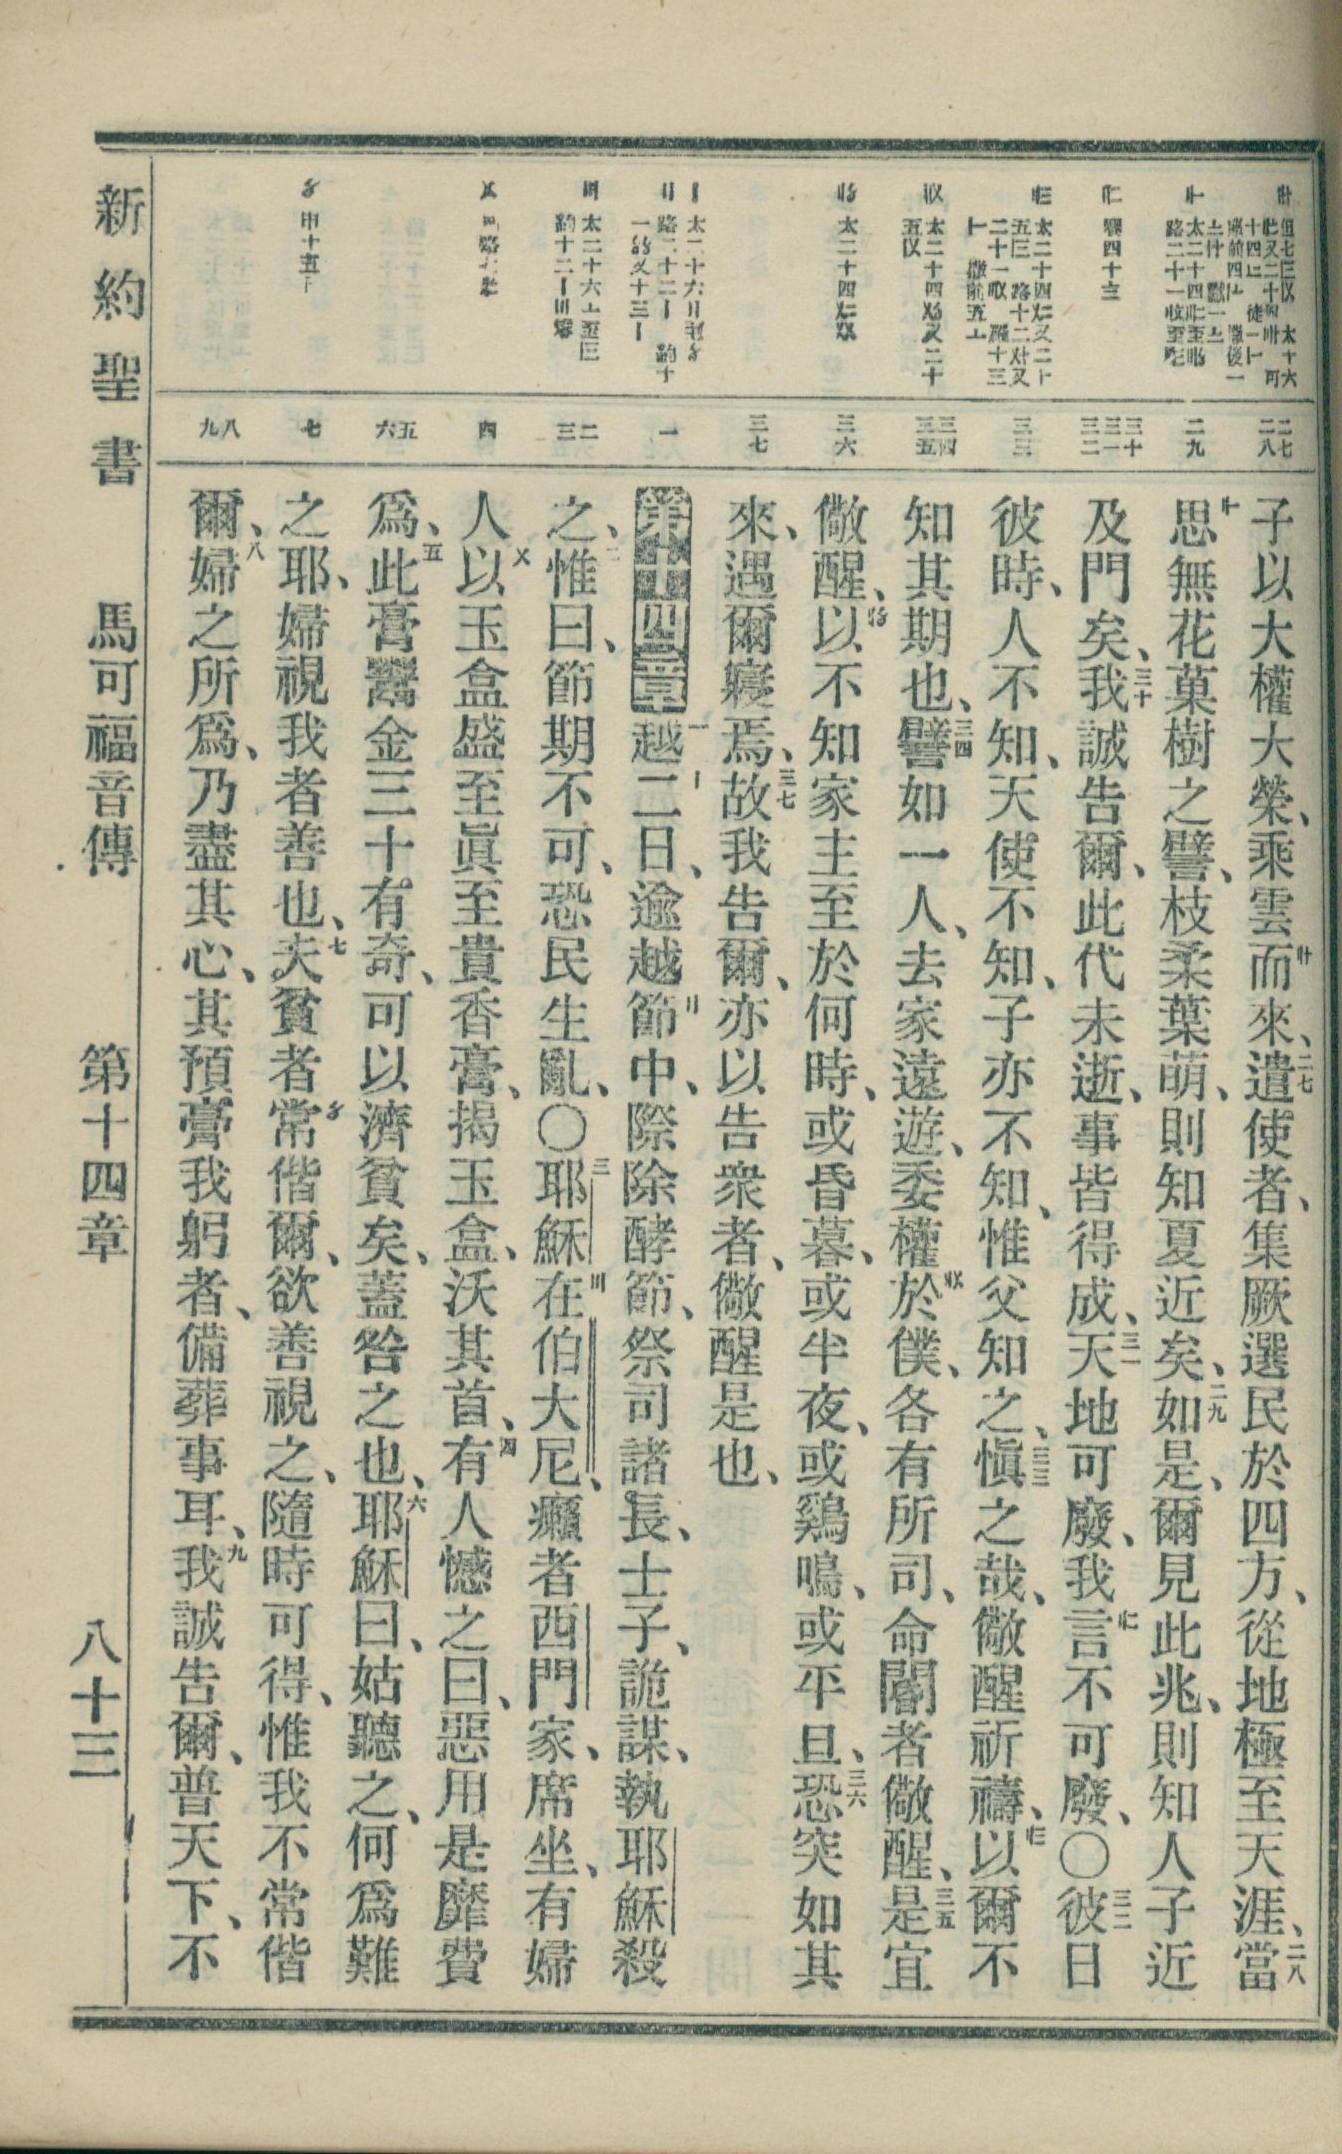 子以大權大榮、乘雲而來、二七遣使者、集厥選民於四方、從地極至天涯、二八當
思無花菓樹之譬、枝柔葉萌、則知夏近矣、二九如是、爾見此兆、則知人子近
及門矣、三十我誠告爾、此代未逝、事皆得成、三一天地可廢、我言不可廢、〇三二彼日
彼時、人不知、天使不知、子亦不知、惟父知之、三三愼之哉、儆醒祈禱、以爾不
知其期也、三四譬如一人、去家遠遊、委權於僕、各有所司、命閽者儆醒、三五是宜
儆醒、以不知家主至於何時、或昏暮、或半夜、或鷄鳴、或平旦、三六恐突如其
來、遇爾寢焉、三七故我告爾、亦以告衆者、儆醒是也、
第十四章 一越二日、逾越節中、際除酵節、祭司諸長、士子、詭謀、執耶穌殺
之、二惟曰、節期不可、恐民生亂、〇三耶穌在伯大尼、癩者西門家、席坐、有婦
人以玉盒盛至眞至貴香膏、揭玉盒、沃其首、四有人憾之曰、惡用是靡費
爲、五此膏鬻金三十有奇、可以濟貧矣、蓋咎之也、六耶穌曰、姑聽之、何爲難
之耶、婦視我者善也、七夫貧者常偕爾、欲善視之、隨時可得、惟我不常偕
爾、八婦之所爲、乃盡其心、其預膏我躬者、備葬事耳、九我誠告爾、普天下、不
二七 二八
二九
三十 三一 三二
三三
三四 三五
三六
三七
一
二 三
四
五 六
七
八 九
新約聖書 馬可福音傳 第十四章 八十三